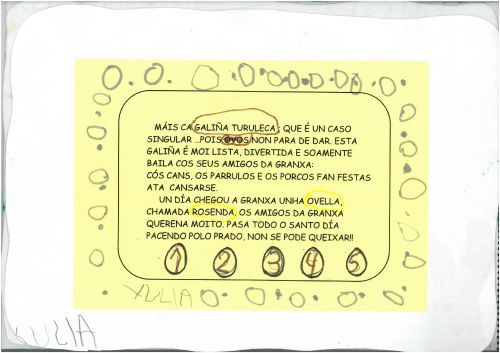 MÁIS CA GALIÑA TURULECA, QUE É UN CASO
SINGULAR ..POIS OVOS NON PARA DE DAR. ESTA
GALIÑA É MOI LISTA, DIVERTIDA E SOAMENTE
BAILA COS SEUS AMIGOS DA GRANXA:
CÓS CANS, OS PARRULOS E OS PORCOS FAN FESTAS
ATA CANSARSE.
UN DÍA CHEGOU A GRANXA UNHA OVELLA,
CHAMADA ROSENDA, OS AMIGOS DA GRANXA
QUERENA MOITO. PASA TODO O SANTO DÍA
PACENDO POLO PRADO, NON SE PODE QUEIXAR!!
1 2 3 4 5
XULIA
XULIA